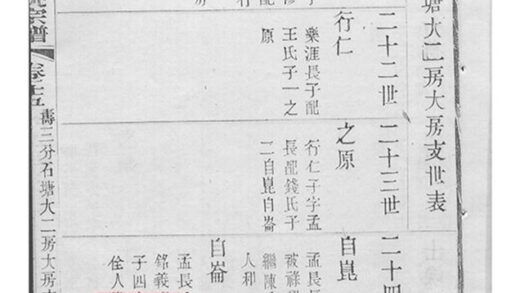 塘大二房大房支世表
二十二世
行仁
藥涯長子配
王氏子一之
原
二十三世
之原
行仁子字孟
長配錢氏子
二自崑自崙
二十四
自崑
孟長長
被祿
繼陳
人和
自崙
孟長
銘義
子四
佺人
宗譜
卷十五
壽三分石塘大二房大房